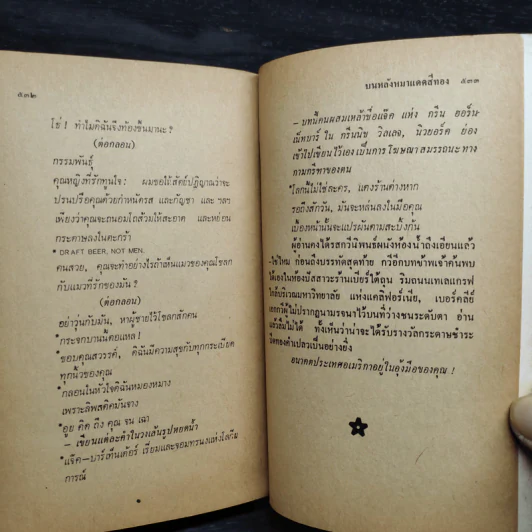 ๕๓๒
โธ่ ! ทำไมดิฉันจึงท้องขึ้นมานะ ?
(ต่อกลอน)
กรรมพันธุ์
คุณหญิงที่รักทูนใจ : ผมขอให้สัตย์ปฏิญาณว่าจะ
ปรนปรือคุณด้วยกำหนัดรส และกัญชา และ ฯลฯ
เพียงว่าคุณจะถนอมโถส้วมให้สะอาด และหย่อน
กระดาษลงในตะกร้า
* DRAFT BEER, NOT MEN.
คนสวย, คุณจะทำอย่างไรถ้าเห็นแมวของคุณไขลก
กับแมวที่รักของมัน ?
(ต่อกลอน)
อย่าวุ่นกับมัน, หาผู้ชายไว้โขลกสักคน
*กระจอกบานนี้คอแหล !
*ขอบคุณสวรรค์, ดิฉันมีความสุขกับทุกกระเบียด
ทุกนิ้วของคุณ
*กลอนในหัวใจดิฉันหมองหมาง
เพราะลิพสติคมันจาง
*อูย คิด ถึง คุณ จน เฉา
– เขียนแต่ละคำในวงเส้นรูปหยดน้ำ
*แจ๊ค–บาร์เท็นเด้อร์ เรี่ยมและจอมทรนงแห่งโลกีม
การณ์
บนหลังหมาแดดสีทอง ๕๓๓
– บทนี้คนผสมเหล้าชื่อแจ๊ค แห่ง กรีน ออร์น-
เม็ทบาร์ ใน กรีนนิช วิลเลจ, นิวยอร์ค ย่อง
เข้าไปเขียนไว้เองเป็นการโฆษณาสมรรถนะทาง
กามกรีฑาของตน
*โลกนี้ไม่ใช่ละคร, แตงร้านต่างหาก
รอถึงสักวัน, มันจะหล่นลงในมือคุณ
เบื้องหน้านั้นจะแปรผันตามสะบึ้งกัน
ผู้อ่านคงได้รสกวีนิพนธ์ผนังห้องน้ำถึงเอียนแล้ว
–ใช่ไหม ก่อนถึงบรรทัดสุดท้าย กวีอีกบทข้าพเจ้าค้นพบ
ได้เองในห้องปัสสาวะร้านเบียร์ใต้ถุน ริมถนนเทเลแกรฟ
ใกล้บริเวณมหาวิทยาลัย แห่งแคลิฟอร์เนีย, เบอร์คลีย์
เอกกวีผู้ไม่ปรากฏนามรจนาไว้บนที่ว่างชนระดับตา อ่าน
แล้วลืมไม่ได้ ทั้งเห็นว่าน่าจะได้รับรางวัลกระดาษชำระ
อนาคตประเทศอเมริกาอยู่ในอุ้งมือของคุณ !